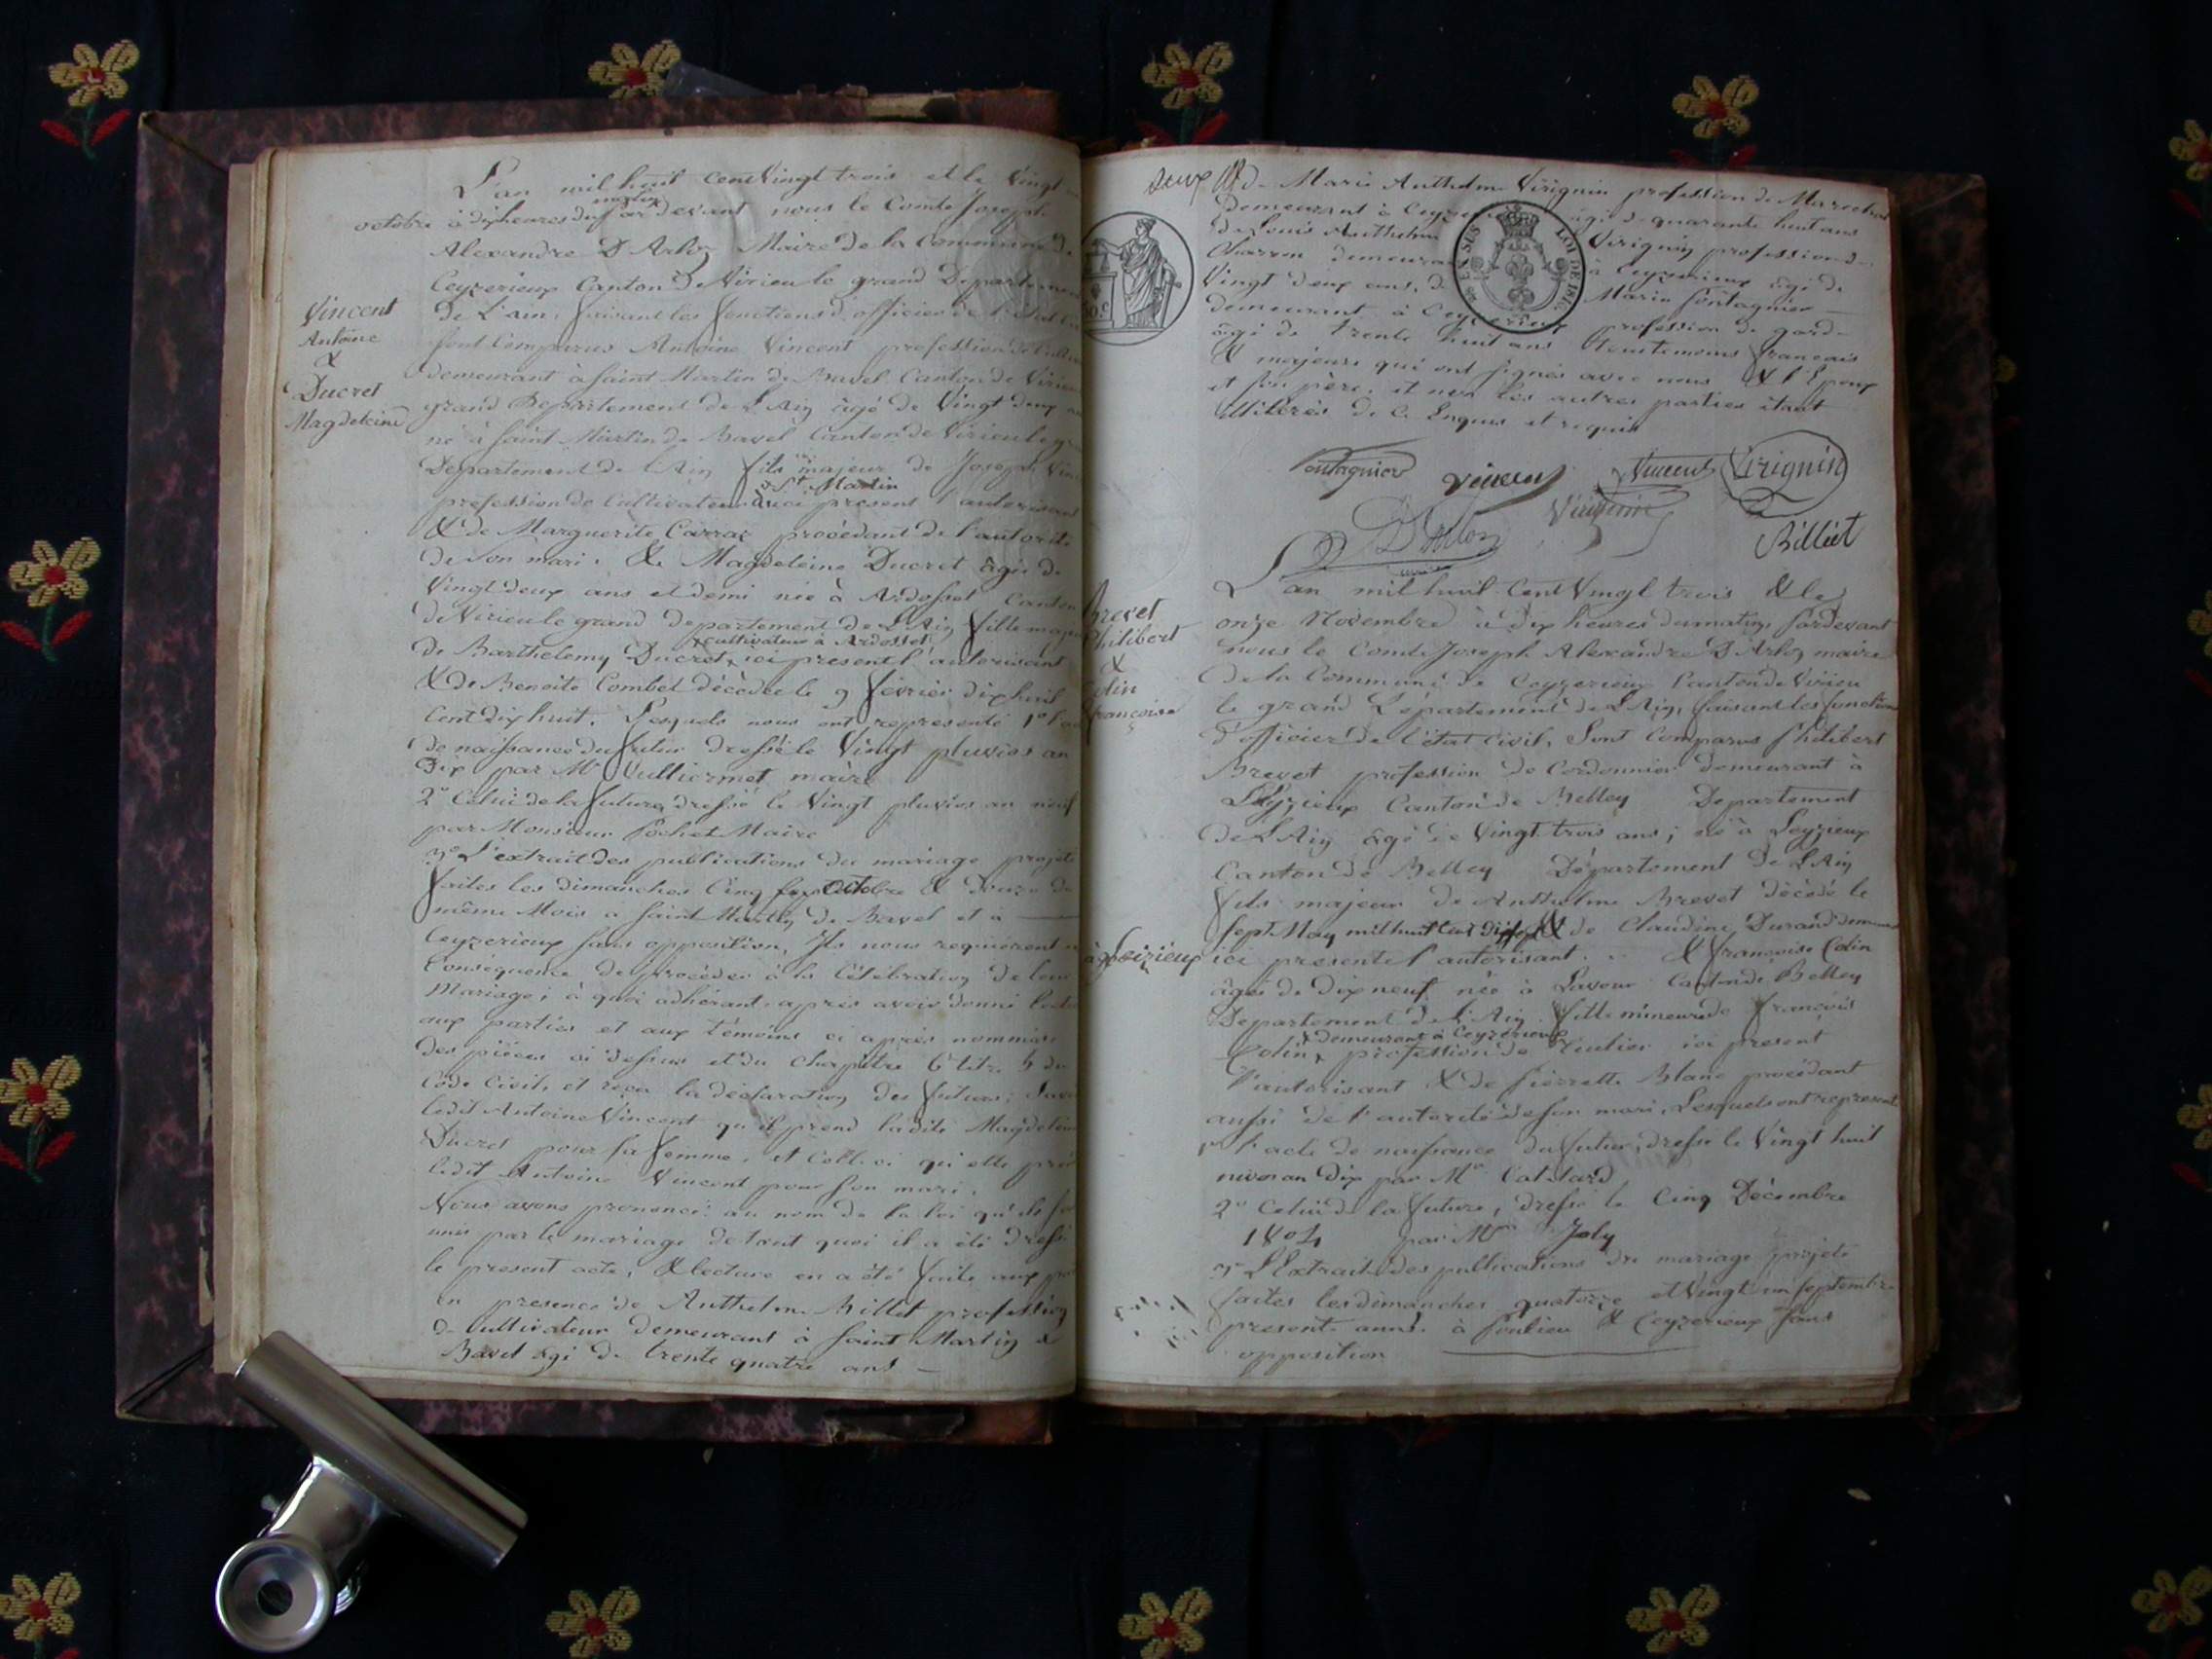 L'an mil huit cent Vingt trois et le Vingt
octobre à dix heures du matin par devant nous le Comte Joseph
Alexandre D'Arloz Maire de la Commune de
Ceyzerieux Canton de Virieu le grand Departement
De L'ain, faisant les fonctions d'officier de l'état
Sont Comparus Antoine Vincent profession de
demeurant à Saint Martin de Bavel Canton de Virieu
grand Departement de L'Ain âgé de Vingt deux
né à Saint Martin de Bavel Canton de Virieu le
Departement de L'Ain fils majeur de Joseph
à St. Martin
profession de Cultivateur ici present l'autorisant
& de Marguerite Carrac procédant de l'autorité
de son mari. & Magdeleine Ducret âgée de
Vingt deux ans et demi née à Ardosset Canton
de Virieu le grand departement de L'Ain fille
x cultivateur à Ardosset
de Barthelemy Ducret x ici present l'autorisant
& de Benoite Combet décédée le 9 février dix huit
Cent dix huit. Lesquels nous ont representé 1º
de naissance du futur dressé le Vingt pluviose an
Dix par Mr Vulliermet maire
2º Celui de la future dressé le Vingt pluviose an neuf
par Monsieur Pochet Maire
3º L'extrait des publications du mariage projeté
faites les dimanches Cinq Octobre & Douze du
même Mois a Saint Martin de Bavel et à
Ceyzerieux Sans opposition, Ils nous requièrent
Conséquence de procéder à la Célébration de leur
Mariage; à quoi adhérant, après avoir donné
aux parties et aux témoins ci après nommés
des pièces ci dessus et du chapitre 6 titre 5 du
Code Civil, et reçu la déclaration des futurs;
ledit Antoine Vincent qu'il prend ladite
Ducret pour sa femme, et Celle ci qu'elle
ledit Antoine Vincent pour son mari.
Nous avons prononcé au nom de la loi qu'ils
unis par le mariage de tout quoi il a été
le present acte, & lecture en a été faite aux
en presence de Anthelme Billet profession
de Cultivateur demeurant à Saint Martin de
Bavel âgé de trente quatre ans
Vincent
Antoine
&
Ducret
Magdeleine
deux
& de Marie Anthelme Virignin profession de Marechal
Demeurant à âgé de quarante huit ans
de Louis Anthelme Virignin profession de
Charron à Ceyzerieux âgé de
Vingt deux ans, Marin Pontagnier
demeurant à Ceyzerieux profession de garde
âgé de trente huit ans tous témoins français
& majeurs qui ont signés avec nous & l'Epoux
et son père, et non les autres parties étant
illiterés de ce Enquis et requis
EX SUS LOI DE 1816
Pontagnier Vincent Vincent Virignin
Virignin
D'Arloz Billiet
L'an mil huit Cent Vingt trois & le
onze Novembre à Dix heures du matin, Pardevant
nous le Comte Joseph Alexandre D'Arloz maire
de la Commune de Ceyzerieux Canton de Virieu
le grand Département de L'Ain, faisant les fonctions
d'officier de l'état Civil, Sont Comparus Philibert
Brevet profession de Cordonnier demeurant à
Leyzieux Canton de Belley Departement
de L'Ain âgé de Vingt trois ans; né à Leyzieux
Canton de Belley Département De L'Ain
fils majeur de Anthelme Brevet décédé le
Sept May mil huit Cent & de Claudine Durand
ici presente l'autorisant & françoise Colin
âgée de Dix neuf née à Lavour Canton de Belley
Departement de L'Ain fille mineure de François
x demeurant à Ceyzerieux
Colin x profession de ici present
l'autorisant & de Pierrette Blanc procédant
aussi de l'autorité de son mari, Lesquels ont representé
1º L'acte de naissance du futur, dressé le Vingt huit
nivos an Dix par Mr
2º Celui de la future, dressé le Cinq Décembre
1804 par Mr Joly
3º L'Extrait des publications du mariage projeté
faites les dimanches quatorze et Vingt un septembre
presente année à & Ceyzerieux Sans
opposition
Brevet
Philibert
&
Colin
françoise